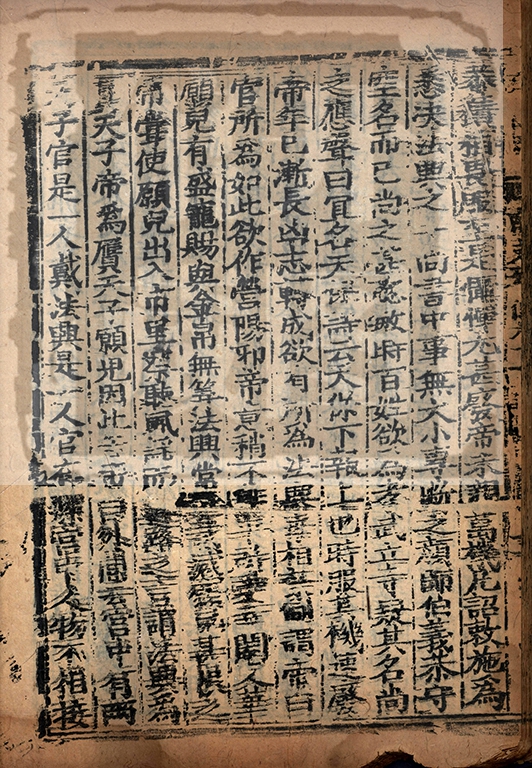 恭廣相畏服至是懼憚尤甚發帝未親萬機凡詔敕施為
悉決法興之 尚書中事無大小專斷之顏師伯義恭守
空名而已尚之甚聰敏時百姓欲為孝武立寺疑其名尚
之應聲曰宜名天保詩云天保下報上也時服其機速廢
帝年已漸長凶志轉成欲有所為法興 相 制謂帝曰
官所為如此欲作營陽邪帝意稍不 平所愛幸閹人華
願兒有盛寵賜與金帛無筭法興常 裁減願兒甚恨之
帝嘗使願兒出入市里察聽風謠而道路之言謂法興為
真天子帝為贗天子願兒因此告帝曰外間云宮中有兩
天子官是一人戴法興是一人官在深宮中人物不相接